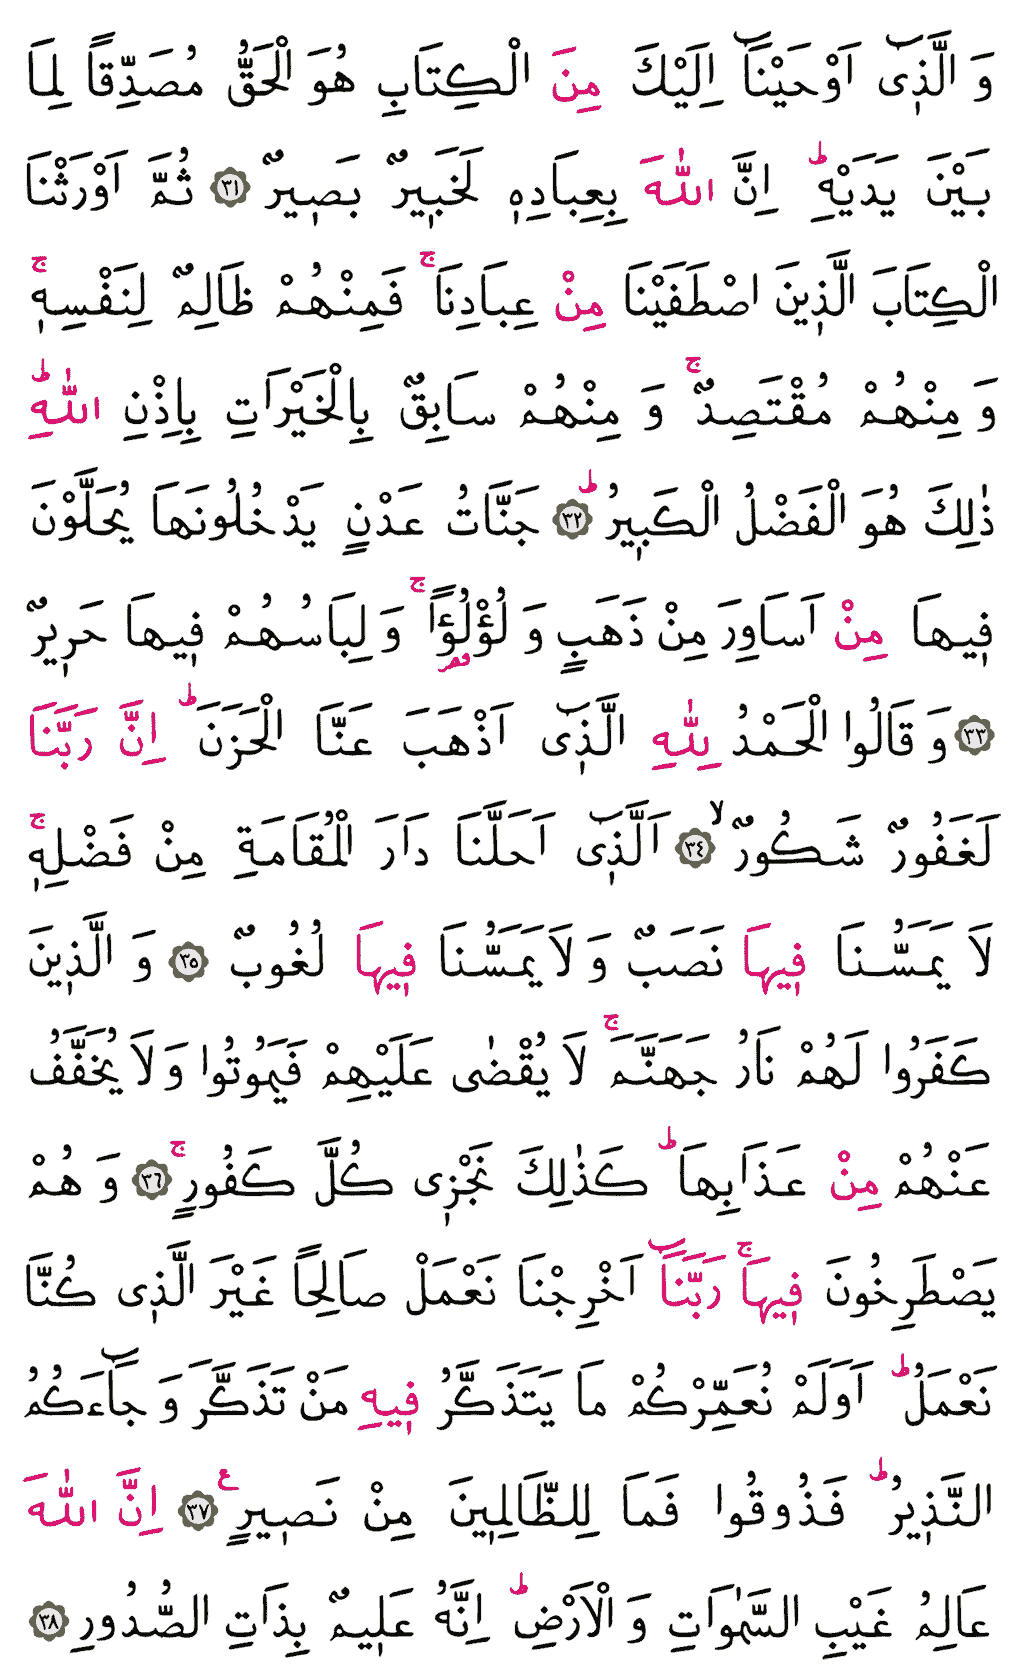 وَ الَّذٖٓى اَوْحَيْنَٓا اِلَيْكَ مِنَ الْكِتَابِ هُوَ الْحَقُّ مُصَدِّقًا لِمَا
بَيْنَ يَدَيْهِؕ اِنَّ اللّٰهَ بِعِبَادِهٖ لَخَبٖيرٌ بَصٖيرٌ ﴿٣١﴾ ثُمَّ اَوْرَثْنَا
الْكِتَابَ الَّذٖينَ اصْطَفَيْنَا مِنْ عِبَادِنَاۚ فَمِنْهُمْ ظَالِمٌ لِنَفْسِهٖۚ
وَ مِنْهُمْ مُقْتَصِدٌۚ وَ مِنْهُمْ سَابِقٌ بِالْخَيْرَاتِ بِاِذْنِ اللّٰهِؕ
ذٰلِكَ هُوَ الْفَضْلُ الْكَبٖيرُؕ ﴿٣٢﴾ جَنَّاتُ عَدْنٍ يَدْخُلُونَهَا يُحَلَّوْنَ
فٖيهَا مِنْ اَسَاوِرَ مِنْ ذَهَبٍ وَ لُؤْلُؤًاۚ وَ لِبَاسُهُمْ فٖيهَا حَرٖيرٌ
﴿٣٣﴾ وَ قَالُوا الْحَمْدُ لِلّٰهِ الَّذٖٓى اَذْهَبَ عَنَّا الْحَزَنَؕ اِنَّ رَبَّنَا
لَغَفُورٌ شَكُورٌۙ ﴿٣٤﴾ اَلَّذٖٓى اَحَلَّنَا دَارَ الْمُقَامَةِ مِنْ فَضْلِهٖۚ
لَا يَمَسُّنَا فٖيهَا نَصَبٌ وَ لَا يَمَسُّنَا فٖيهَا لُغُوبٌ ﴿٣٥﴾ وَ الَّذٖينَ
كَفَرُوا لَهُمْ نَارُ جَهَنَّمَۚ لَا يُقْضٰى عَلَيْهِمْ فَيَمُوتُوا وَ لَا يُخَفَّفُ
عَنْهُمْ مِنْ عَذَابِهَاؕ كَذٰلِكَ نَجْزٖى كُلَّ كَفُورٍۚ ﴿٣٦﴾ وَ هُمْ
يَصْطَرِخُونَ فٖيهَاۚ رَبَّنَٓا اَخْرِجْنَا نَعْمَلْ صَالِحًا غَيْرَ الَّذٖى كُنَّا
نَعْمَلُؕ اَوَلَمْ نُعَمِّرْكُمْ مَا يَتَذَكَّرُ فٖيهِ مَنْ تَذَكَّرَ وَ جَٓاءَكُمُ
النَّذٖيرُؕ فَذُوقُوا فَمَا لِلظَّالِمٖينَ مِنْ نَصٖيرٍ ع ﴿٣٧﴾ اِنَّ اللّٰهَ
عَالِمُ غَيْبِ السَّمٰوَاتِ وَ الْاَرْضِؕ اِنَّهُ عَلٖيمٌ بِذَاتِ الصُّدُورِ ﴿٣٨﴾